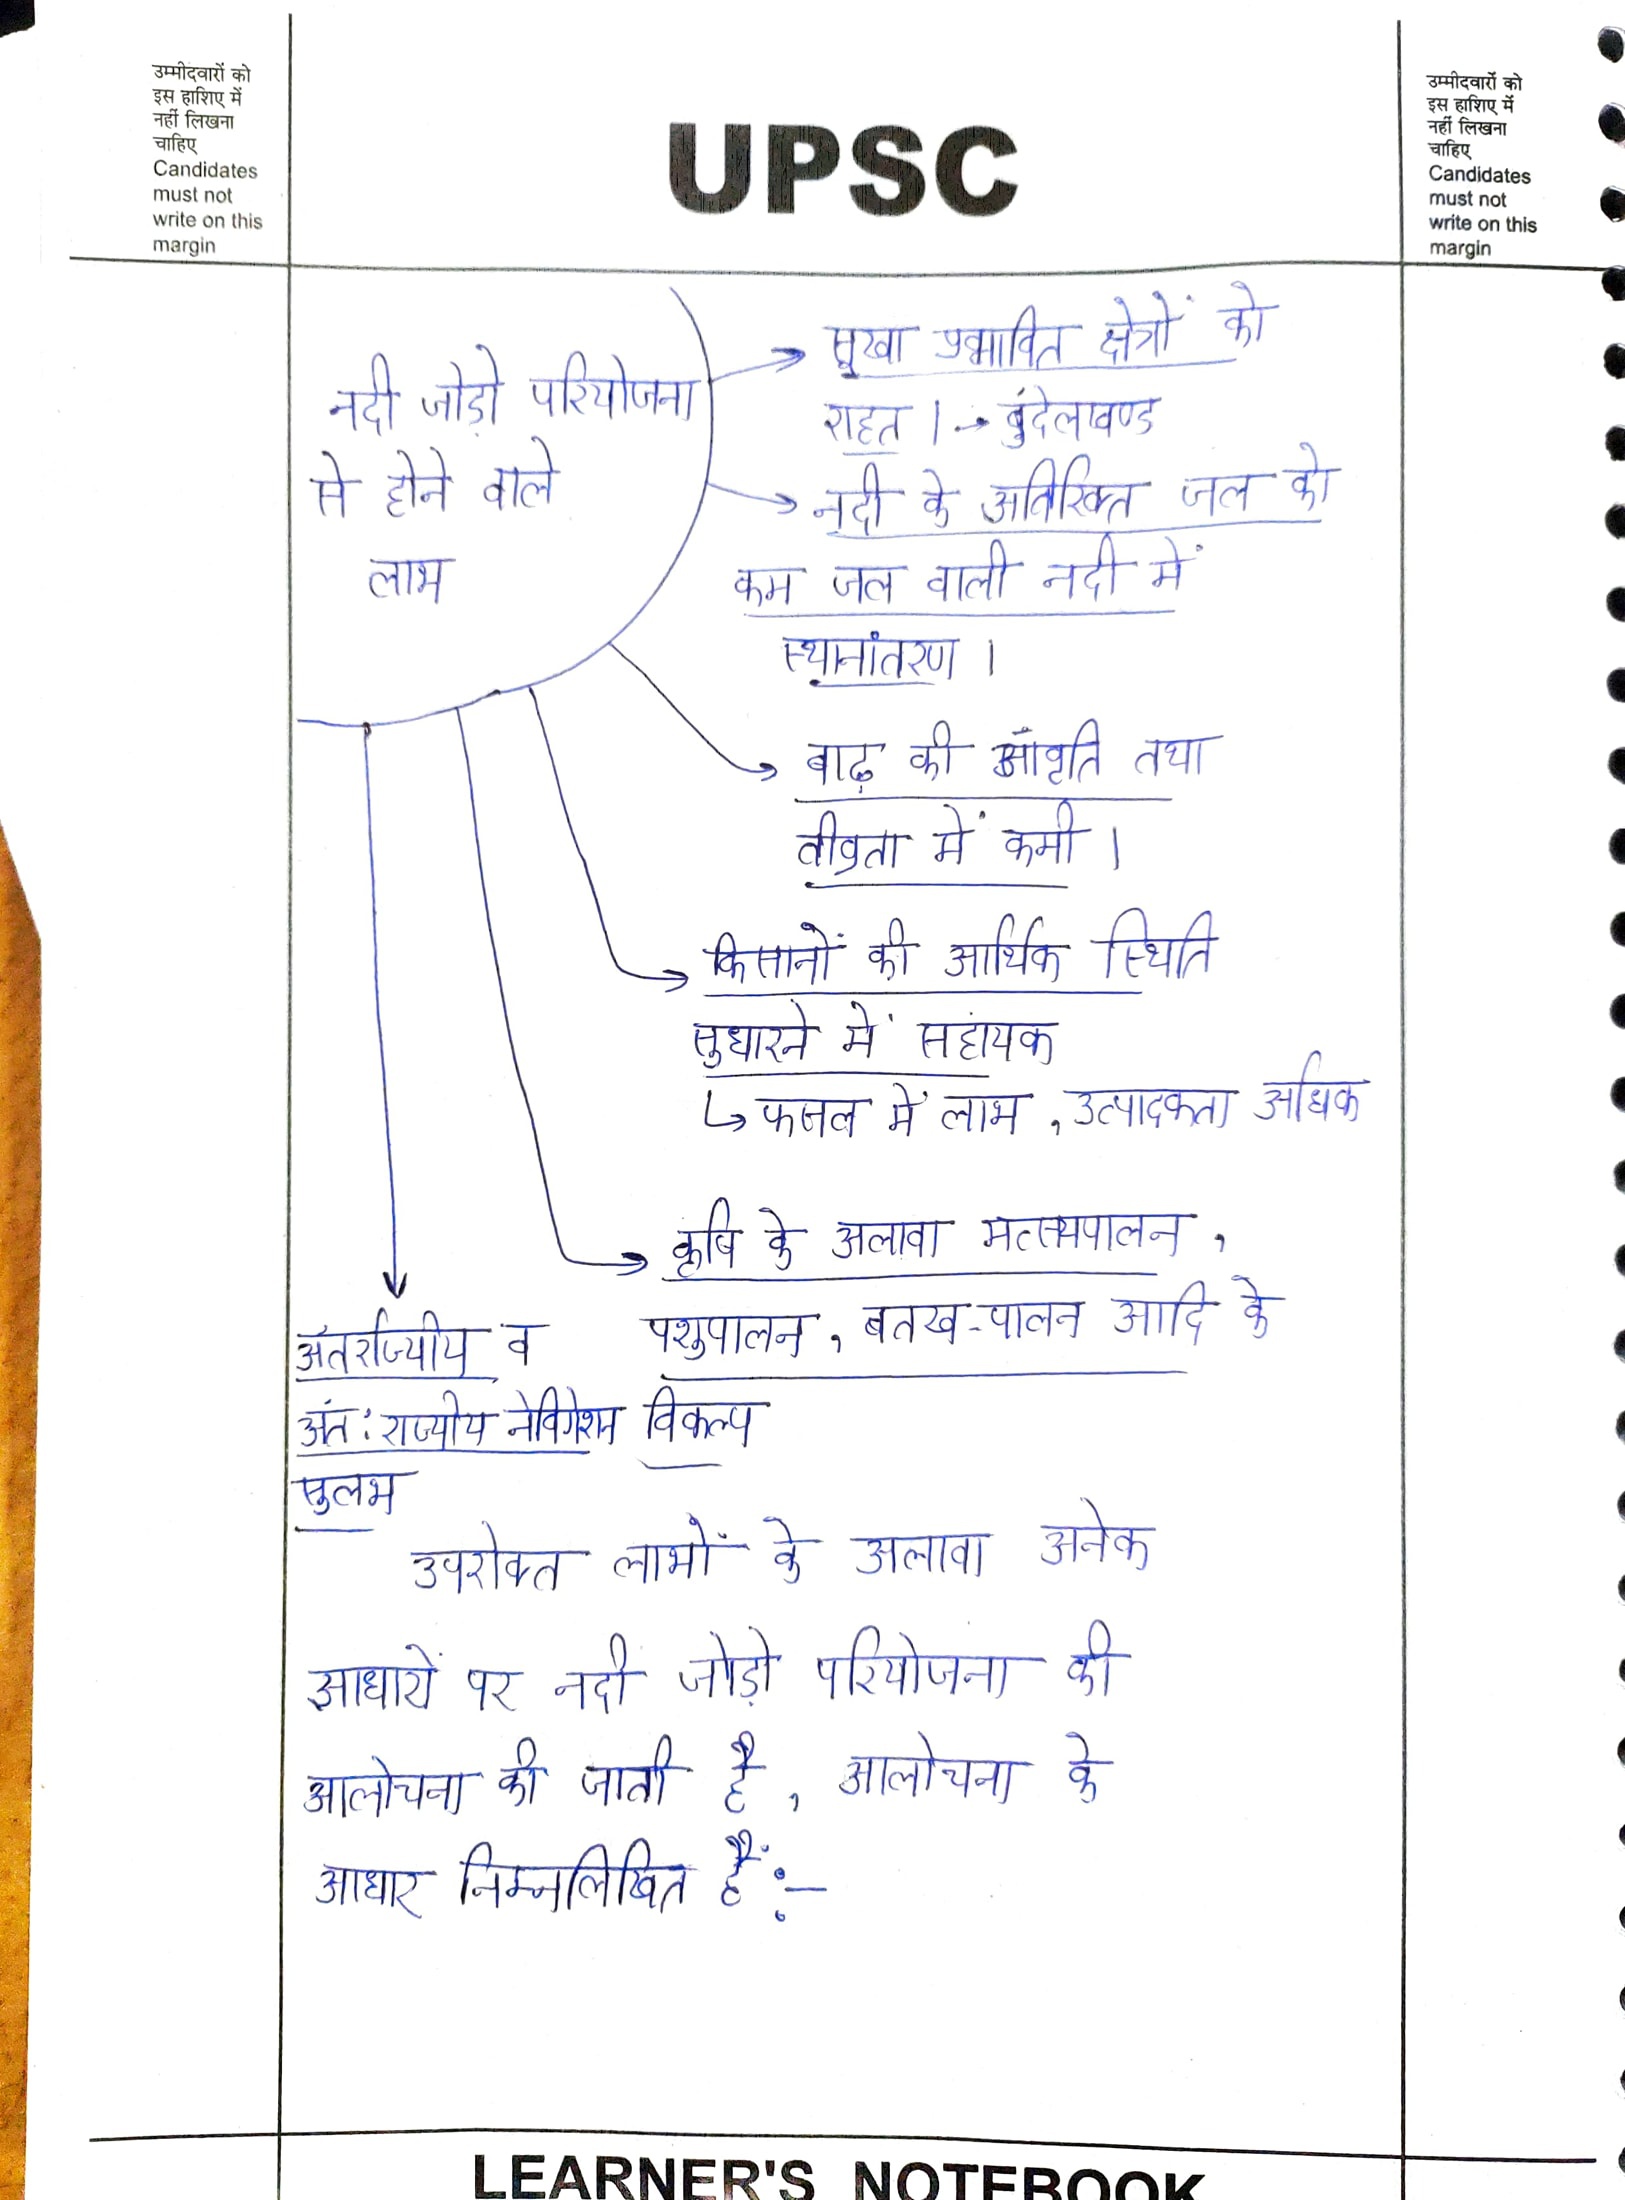 उम्मीदवारों को
इस हाशिए में
नहीं लिखना
चाहिए
Candidates
must not
write on this
margin
UPSC
उम्मीदवारों को
इस हाशिए में
नहीं लिखना
चाहिए
Candidates
must not
write on this
margin
नदी जोड़ो परियोजना
से होने वाले
लाभ
→ सूखा प्रभावित क्षेत्रों को
राहत । → बुंदेलखण्ड
→ नदी के अतिरिक्त जल को
कम जल वाली नदी में
स्थानांतरण ।
→ बाढ़ की आवृति तथा
तीव्रता में कमी ।
→ किसानों की आर्थिक स्थिति
सुधारने में सहायक
↳ फसल में लाभ , उत्पादकता अधिक
→ कृषि के अलावा मत्स्यपालन ,
पशुपालन , बतख-पालन आदि के
विकल्प
अंतर्राज्यीय व
अंत: राज्यीय नेविगेशन
सुलभ
उपरोक्त लाभों के अलावा अनेक
आधारों पर नदी जोड़ो परियोजना की
आलोचना की जाती है , आलोचना के
आधार निम्नलिखित हैं :-
LEARNER'S NOTEBOOK